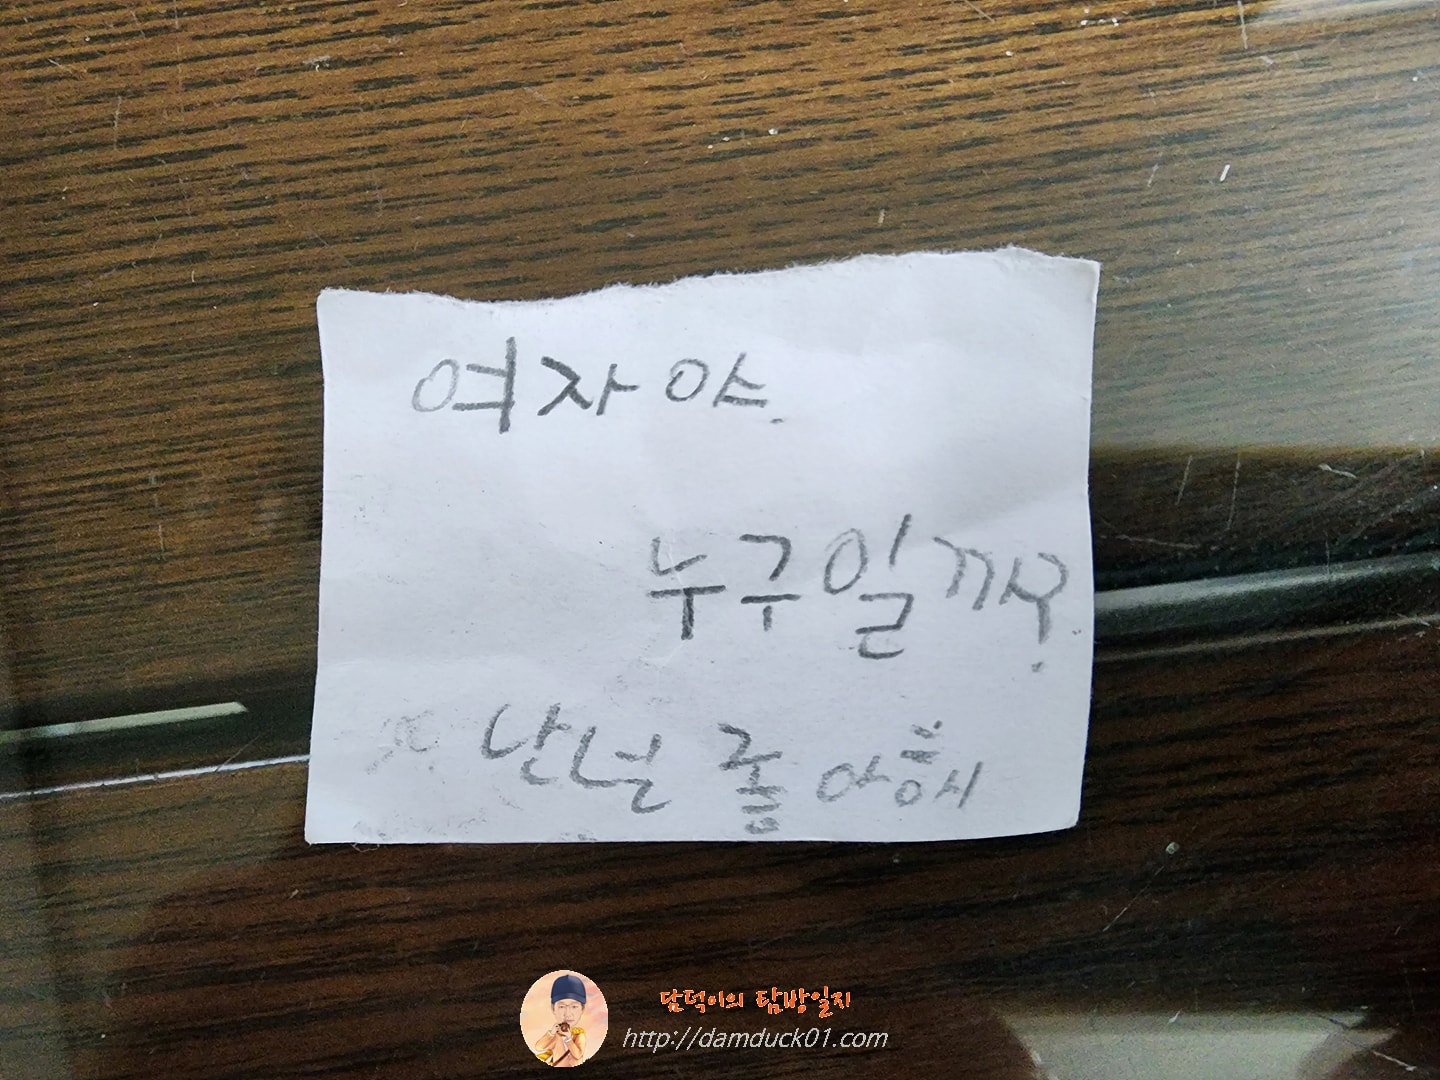 여자야.
누구일까?
난널 좋아해
담덕이의 탐방일지
http://damduck01.com